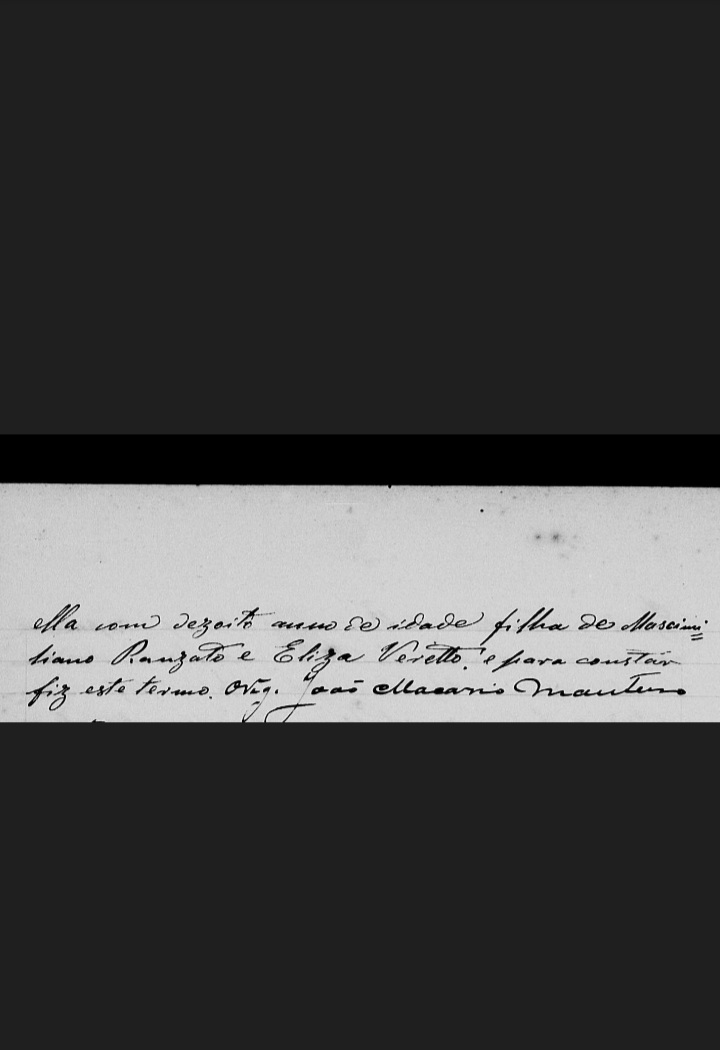 ella com dezoito anno de idade filha de Mascimi=
liano Ranzato e Eliza Veietto, e para constar
fiz este termo. O Vig. João Macario Monteiro